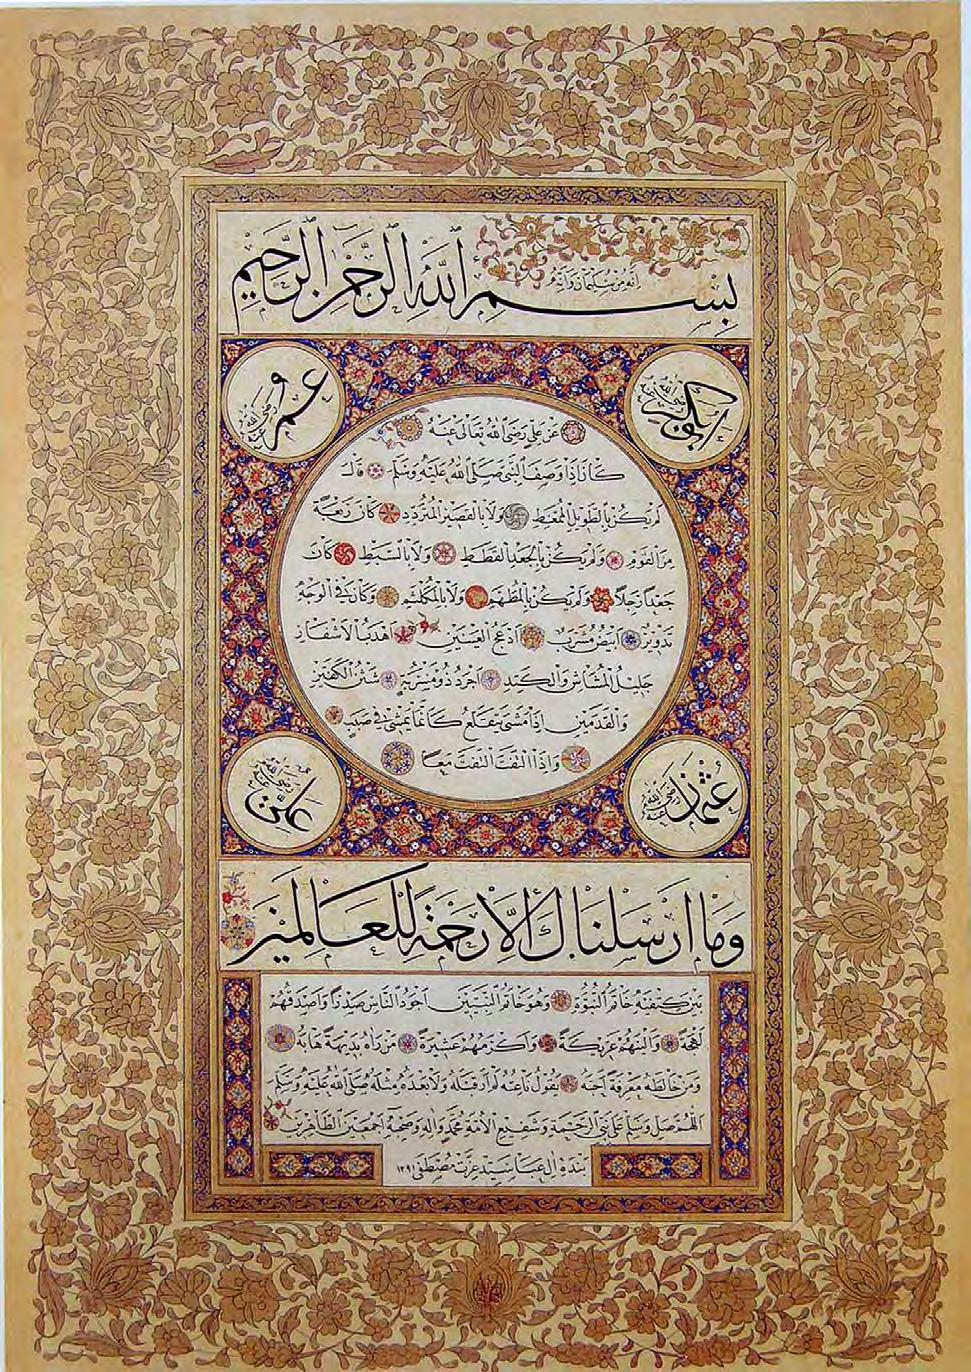 بسم الله الرحمن الرحيم
إنه من سليمان وإنه
أبو بكر رضي الله عنه
عمر رضي الله عنه
عن علي رضي الله تعالى عنه
كان إذا وصف النبي صلى الله عليه وسلم قال
لم يكن بالطويل الممغط ولا بالقصير المتردد كان ربعة
من القوم ولم يكن بالجعد القطط ولا بالسبط كان
جعدا رجلا ولم يكن بالمطهم ولا بالمكلثم وكان في الوجه
تدوير أبيض مشرب أدعج العينين أهدب الأشفار
جليل المشاش والكتد أجرد ذو مسربة شثن الكفين
والقدمين إذا مشى يتقلع كأنما يمشي في صبب
وإذا التفت التفت معا
عثمان رضي الله عنه
علي رضي الله عنه
وما أرسلناك إلا رحمة للعالمين
بين كتفيه خاتم النبوة وهو خاتم النبيين أجود الناس صدرا وأصدقهم
لهجة وألينهم عريكة وأكرمهم عشيرة من رآه بديهة هابه
ومن خالطه معرفة أحبه يقول ناعته لم أر قبله ولا بعده مثله صلى الله عليه وسلم
اللهم صل وسلم على نبي الرحمة وشفيع الأمة محمد وآله وصحبه أجمعين الطاهرين
بنده آل عبا سيد عزت مصطفى ١٢٩١